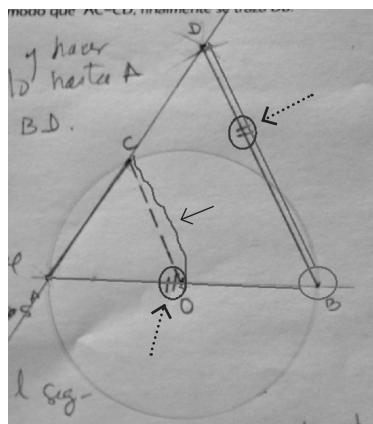 modo que AC=CD, finalmente se trazó DB.
y hacer
hasta A
BD.
D
C
A
O
B
l seg-